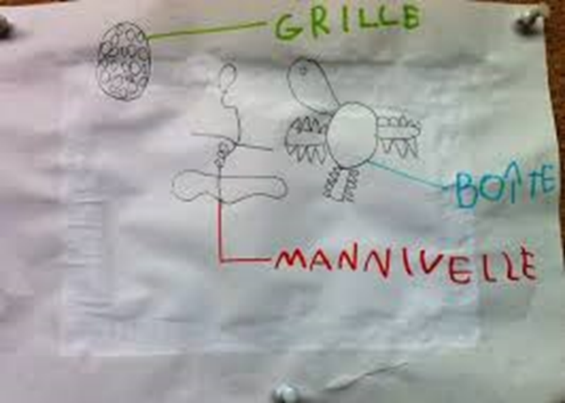 GRILLE
BOÎTE
MANNIVELLE